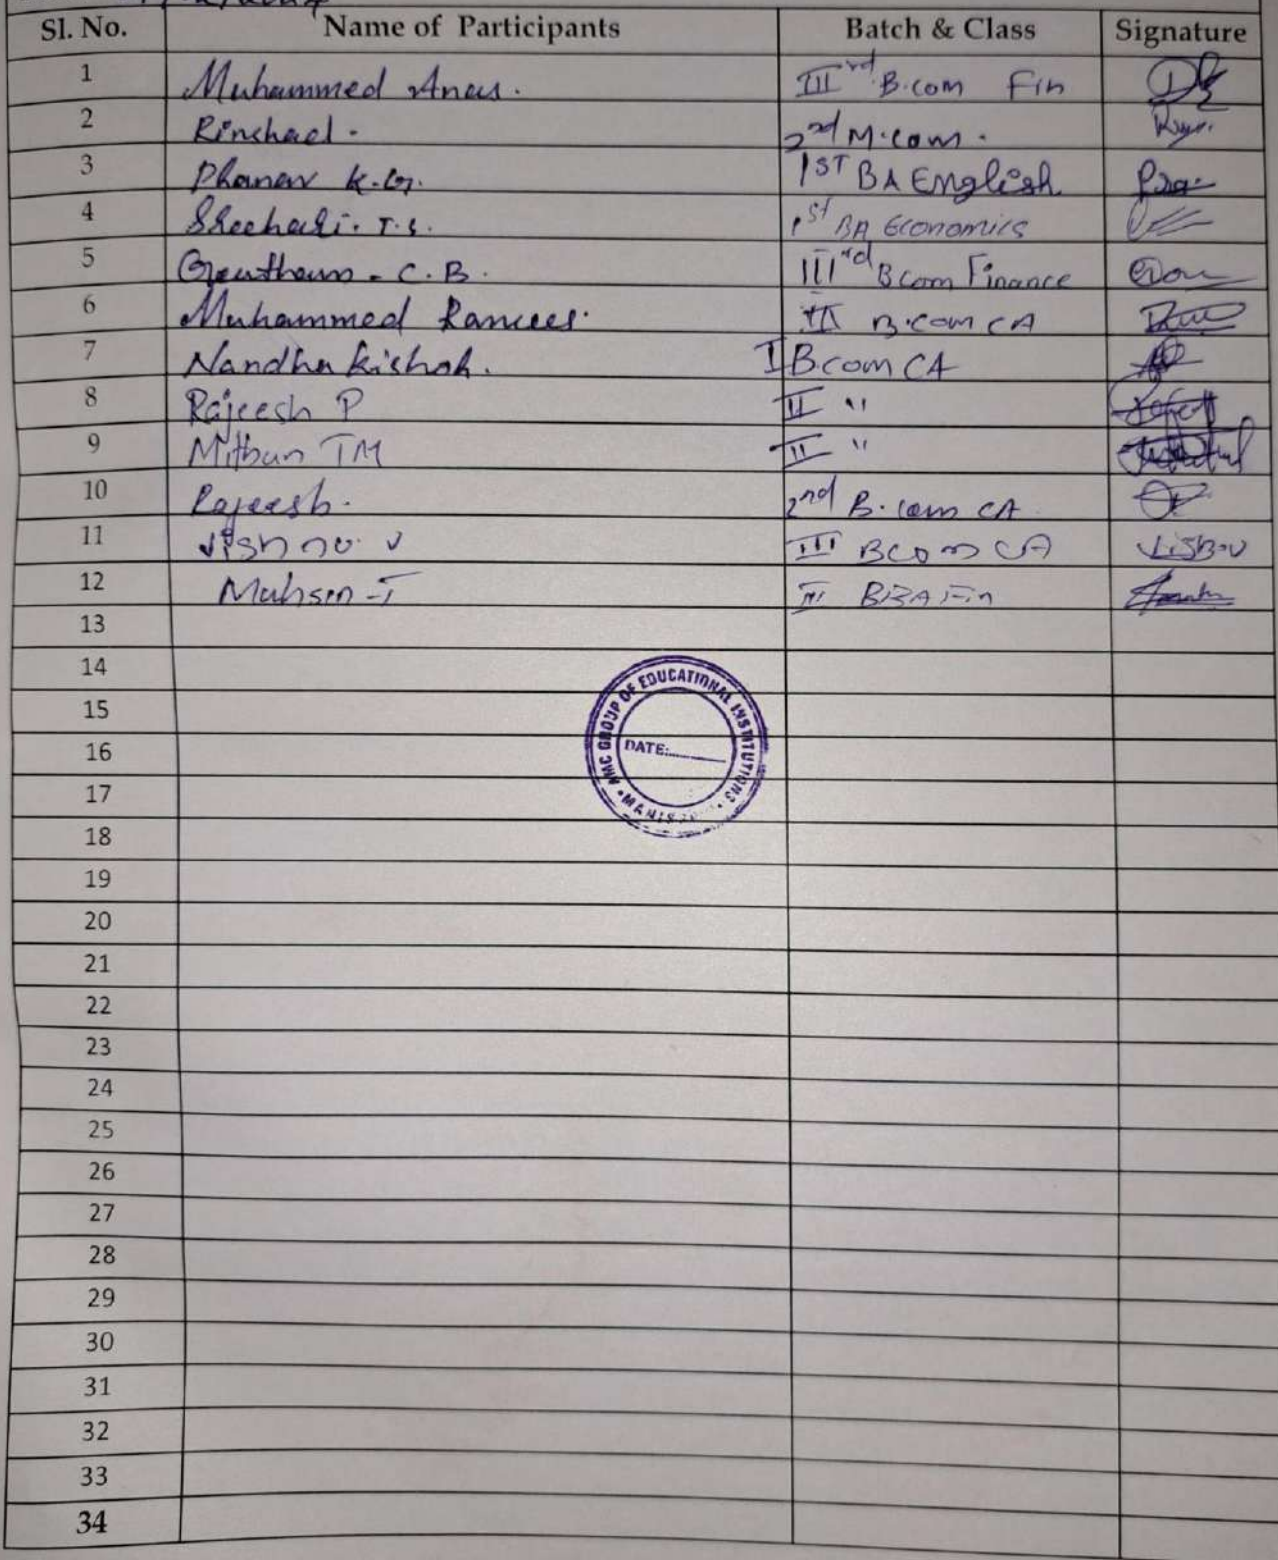 Sl. No. Name of Participants Batch & Class Signature
1 Muhammed Anas. III rd B.com Fin
2 Rinshad. 2nd M.com.
3 Phanav K.G. 1ST BA English
4 Sreehari. T.S. 1st BA Economics
5 Gowtham. C.B. III rd B com Finance
6 Muhammed Ramees. B.com CA
7 Nandha Kishor. I B com CA
8 Rajeesh P II "
9 Mithun TM II "
10 Rajeesh. 2nd B.com CA
11 Vishnu. V III BCom CA Vishnu
12 Muhsin-T III BBA Fin
13
14
15
16
17
18
19
20
21
22
23
24
25
26
27
28
29
30
31
32
33
34
AMC GROUP OF EDUCATIONAL INSTITUTIONS
DATE: